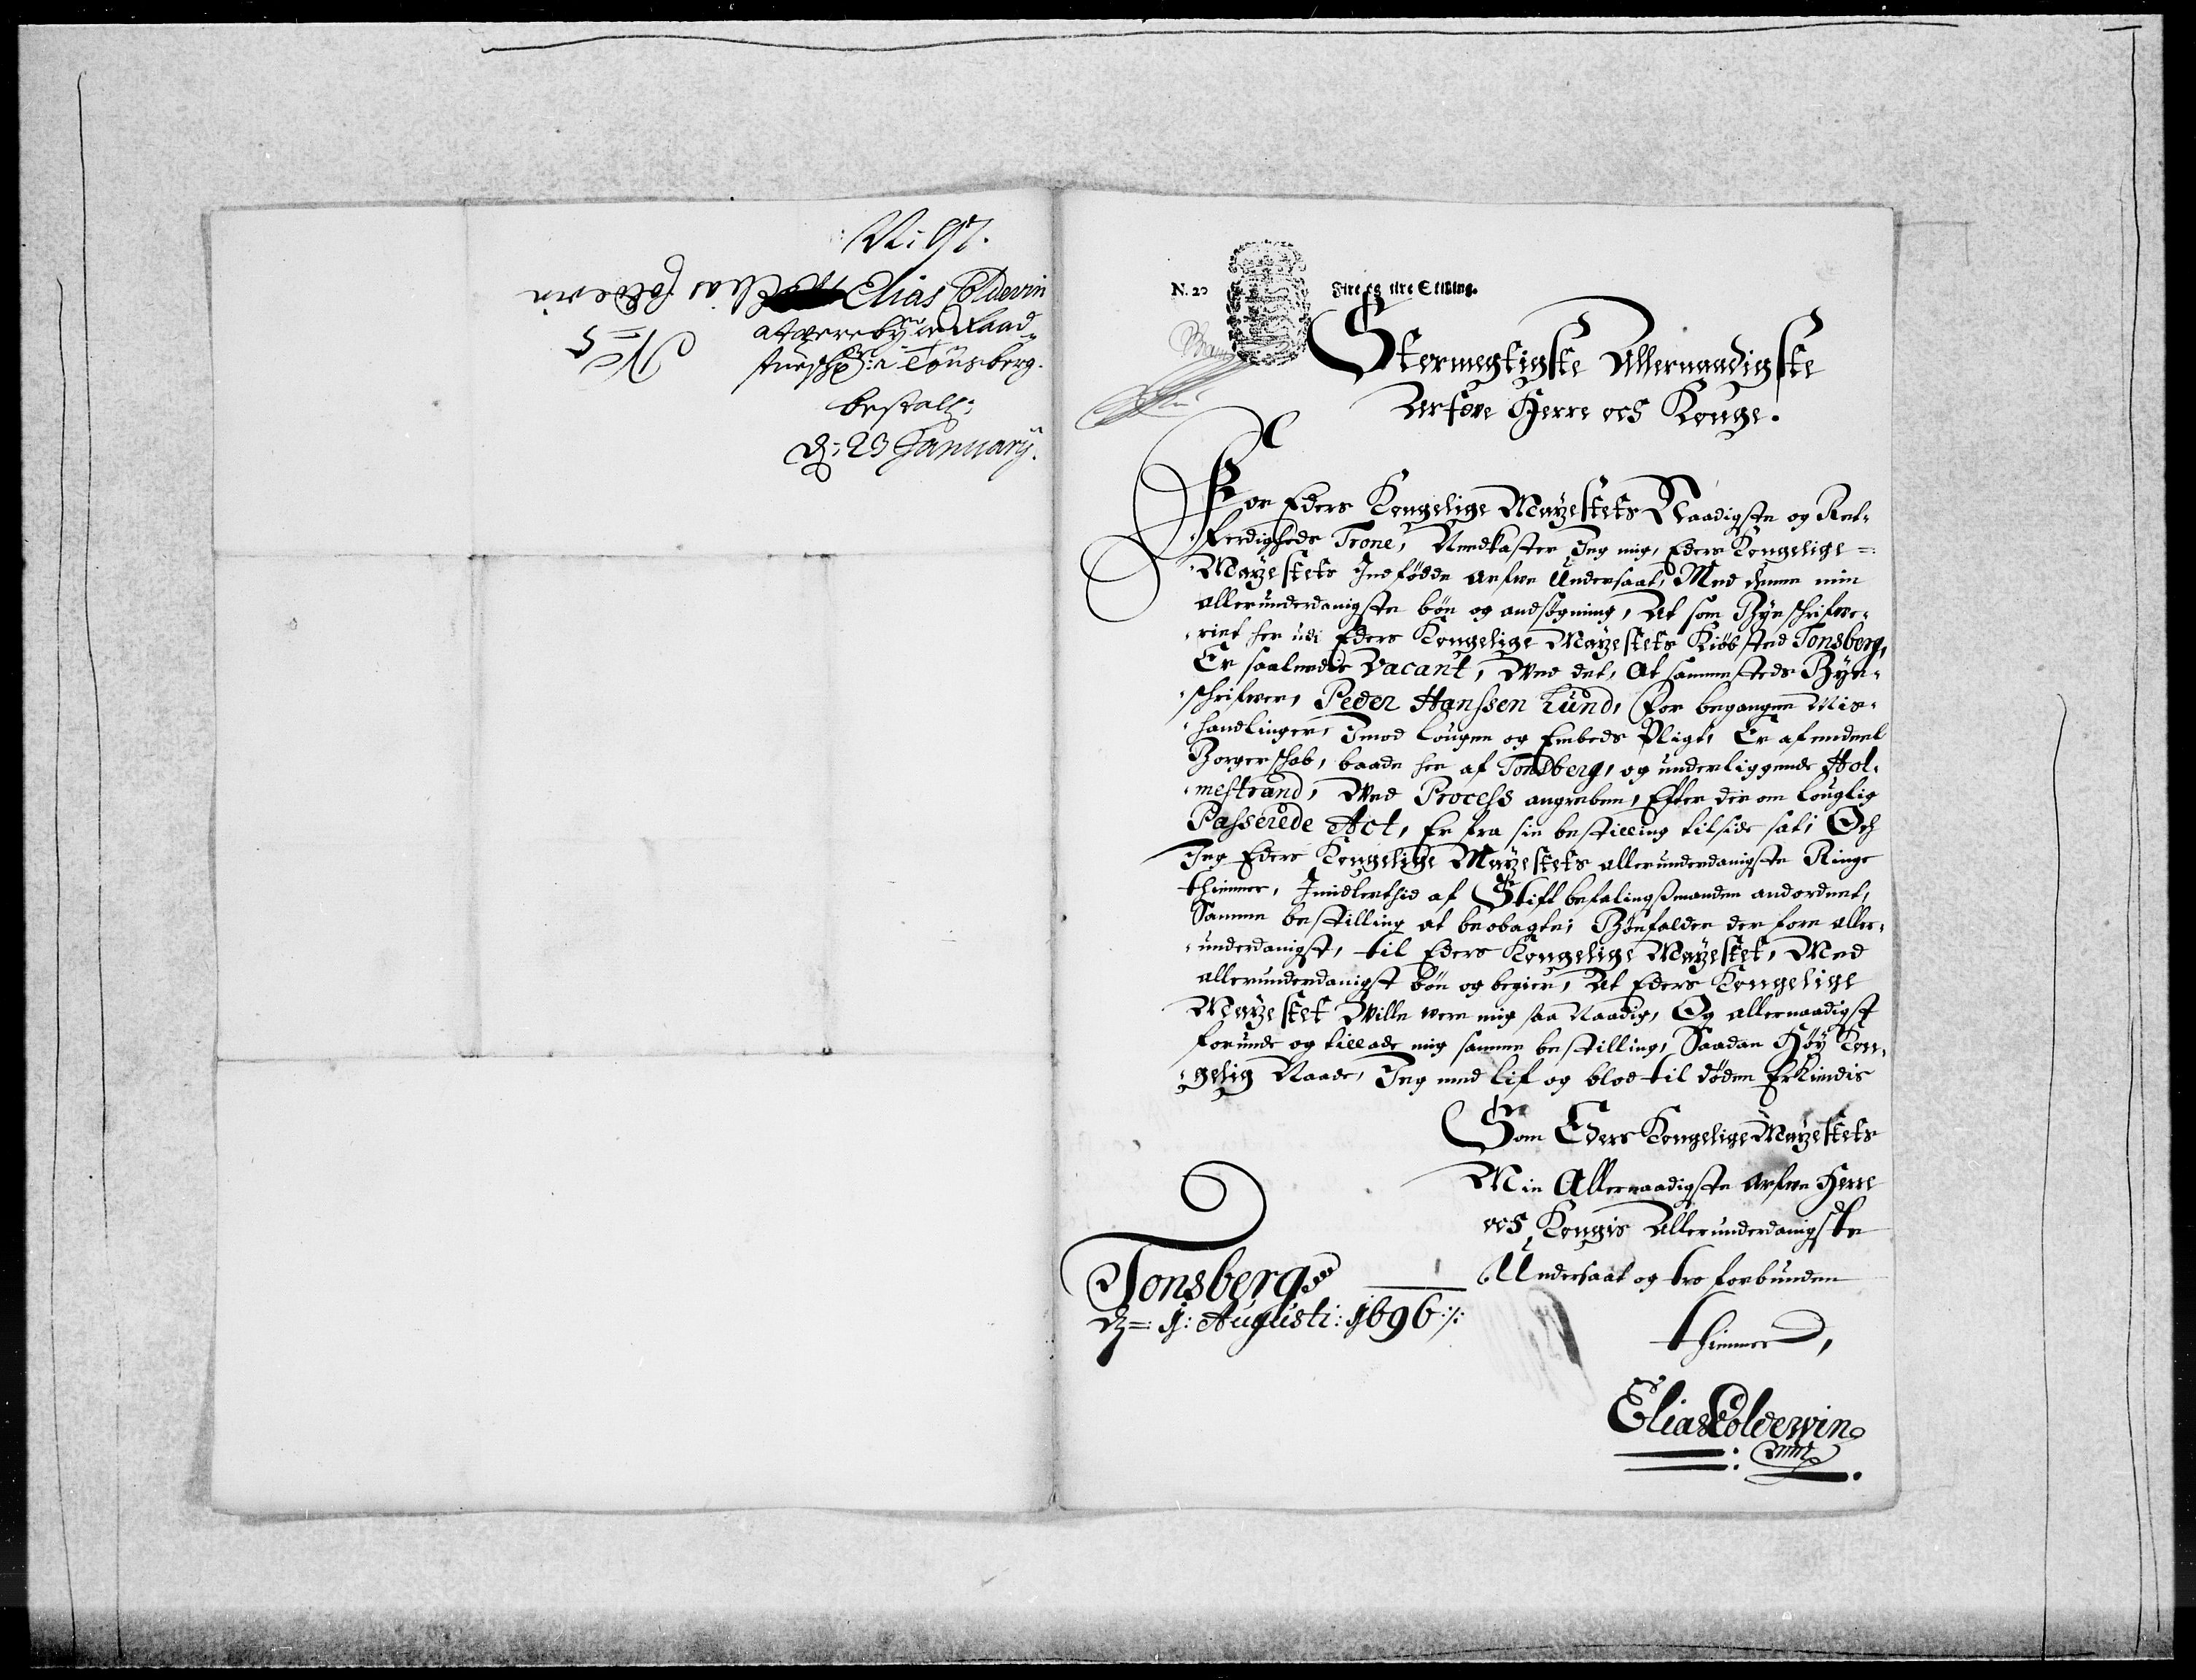 N: 97.
Elias Coldevin
Elias Coldevin
at were by og Raad-
stueschr: i Tønsberg.
N 5
bestalt:
d: 23 January.
N. 20
Fire og tive Skilling.
Stormegtigste Allernaadigste
Arfve Herre och Konge.
For Eders Kongelige Mayestets Naadigste og Ret-
ferdigheds Trone, Nedkaster Jeg mig, Eders Kongelige
Mayestets Indfødde arfve Undersaat, Med denne min
allerunderdanigste bøn og andsøgning, At som Byeskrifve-
riet her udi Eders Kongelige Mayestets Kiøbsted Tonsberg,
Er saaledis Vacant, Ved det, At sammesteds Bye-
skrifver, Peder Hanssen Lund, for begangne Mis-
handlinger, Imod lougen og Embeds Pligt, Er af endeel
Borgerskab, baade her af Tonsberg, og underliggende Hol-
mestrand, Med Process angreben, Efter der om louglig
Passerede Act, Er fra sin bestilling tilside sat; Och
Jeg Eders Kongelige Mayestets allerunderdanigste Ringe
thienner, Imidlerthid af Stiftbefalingsmanden andordnet,
Samme bestilling at beobagte; Bønfalder derfore aller-
underdanigst, til Eders Kongelige Mayestet, Med
allerunderdanigst bøn og begier, At Eders Kongelige
Mayestet Wille were mig saa Naadig, Og allernaadigst
forunde og tillade mig samme bestilling, Saadan Høy Kon-
gelig Naade, Jeg med lif og blod til døden Erkiendis
Som Eders Kongelige Mayestets
Min Allernaadigste Arfve Herre
och Kongis Allerunderdanigste
Undersaat og tro forbunden
thienner,
Tonsberg
d: 1: Augusti: 1696
Elias Coldewin
mp